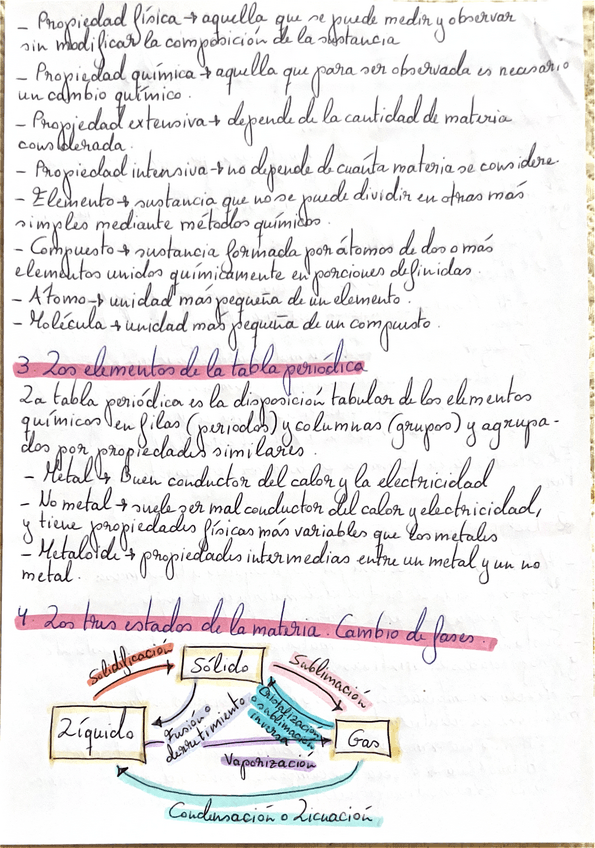 - Propiedad física → aquella que se puede medir y observar
sin modificar la composición de la sustancia
- Propiedad química → aquella que para ser observada es necesario
un cambio químico.
- Propiedad extensiva → depende de la cantidad de materia
considerada.
- Propiedad intensiva → no depende de cuánta materia se considere.
- Elemento → sustancia que no se puede dividir en otras más
simples mediante métodos químicos.
- Compuesto → sustancia formada por átomos de dos o más
elementos unidos químicamente en porciones definidas.
- Átomo → unidad más pequeña de un elemento.
- Molécula → unidad más pequeña de un compuesto.
3. Los elementos de la tabla periódica
La tabla periódica es la disposición tabular de los elementos
químicos en filas (periodos) y columnas (grupos) y agrupa-
dos por propiedades similares.
- Metal → Buen conductor del calor y la electricidad
- No metal → suele ser mal conductor del calor y electricidad,
y tiene propiedades físicas más variables que los metales
- Metaloide → propiedades intermedias entre un metal y un no
metal.
4. Los tres estados de la materia. Cambio de fases.
Solidificación
Sólido
Sublimación
Líquido
Fusión o
derretimiento
Cristalización
o sublimación
inversa
Gas
Vaporización
Condensación o Licuación